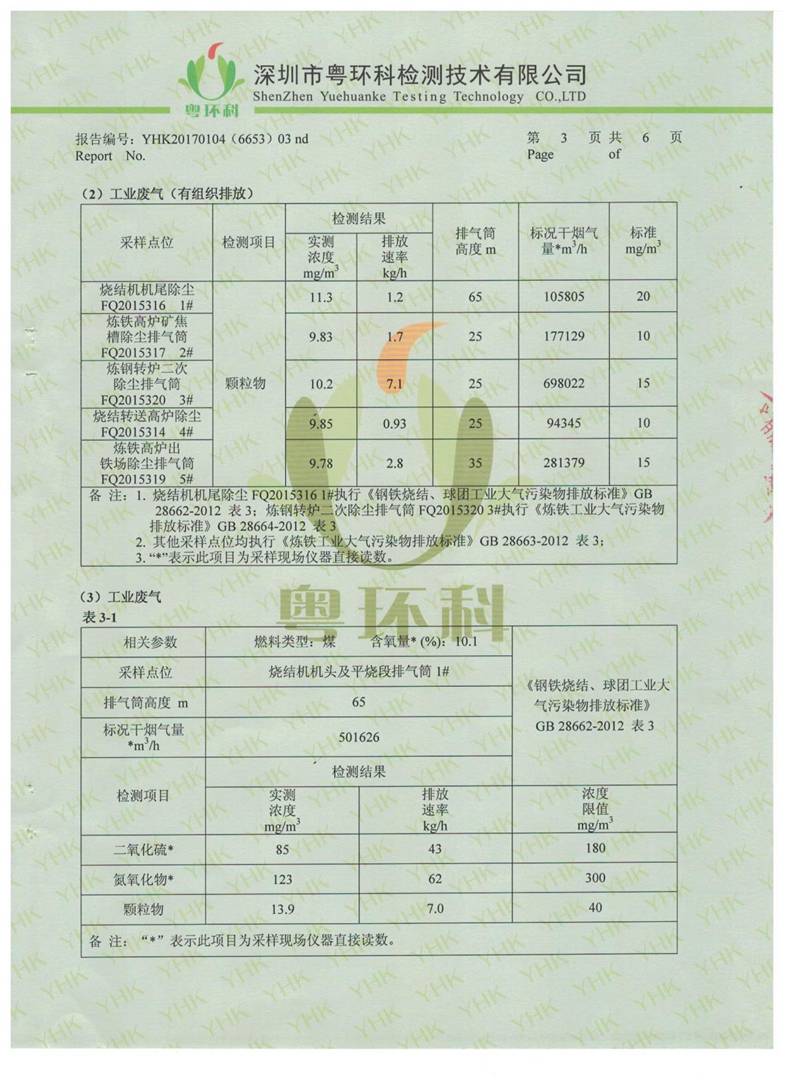 深圳市粤环科检测技术有限公司
ShenZhen Yuehuanke Testing Technology CO.,LTD
粤环科
报告编号：YHK20170104（6653）03 nd
第 3 页 共 6 页
Report No.
Page of
（2）工业废气（有组织排放）
采样点位 检测项目 检测结果 排气筒高度 m 标况干烟气量*m³/h 标准 mg/m³
实测浓度 mg/m³ 排放速率 kg/h
烧结机机尾除尘
FQ2015316 1# 11.3 1.2 65 105805 20
炼铁高炉矿焦
槽除尘排气筒
FQ2015317 2# 9.83 1.7 25 177129 10
炼钢转炉二次
除尘排气筒
FQ2015320 3# 颗粒物 10.2 7.1 25 698022 15
烧结转送高炉除尘
FQ2015314 4# 9.85 0.93 25 94345 10
炼铁高炉出
铁场除尘排气筒
FQ2015319 5# 9.78 2.8 35 281379 15
备 注：1. 烧结机机尾除尘 FQ2015316 1#执行《钢铁烧结、球团工业大气污染物排放标准》GB
28662-2012 表 3；炼钢转炉二次除尘排气筒 FQ2015320 3#执行《炼铁工业大气污染物
排放标准》GB 28664-2012 表 3
2. 其他采样点位均执行《炼铁工业大气污染物排放标准》GB 28663-2012 表 3；
3. “*”表示此项目为采样现场仪器直接读数。
（3）工业废气
粤环科
表 3-1
相关参数 燃料类型：煤 含氧量* (%)：10.1
采样点位 烧结机机头及平烧段排气筒 1#
《钢铁烧结、球团工业大
气污染物排放标准》
GB 28662-2012 表 3
排气筒高度 m 65
标况干烟气量
*m³/h 501626
检测项目 检测结果
实测浓度 mg/m³ 排放速率 kg/h 浓度限值 mg/m³
二氧化硫* 85 43 180
氮氧化物* 123 62 300
颗粒物 13.9 7.0 40
备 注：“*”表示此项目为采样现场仪器直接读数。